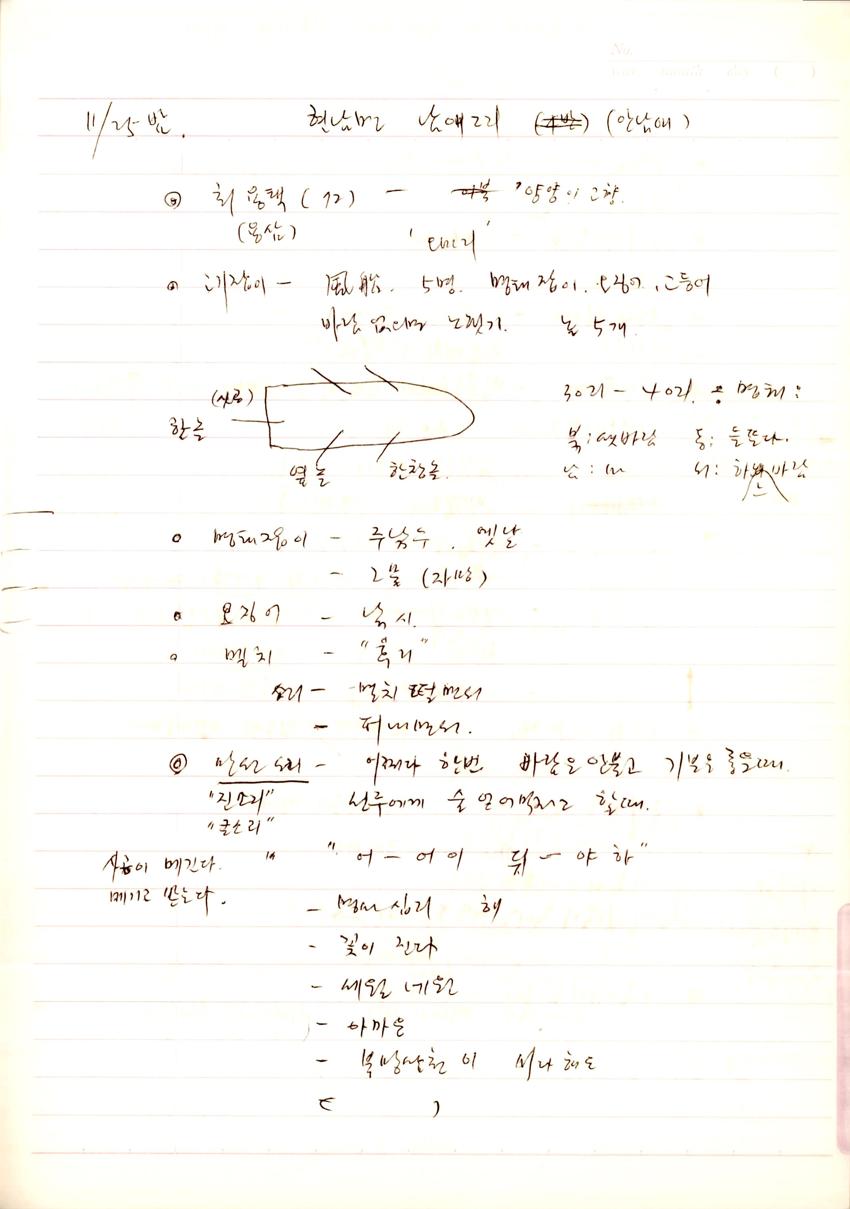 No.
11/25 밤. 현남면 남애2리 (안남애)
◎ 최용택 (72) - 양양이 고향.
(용삼)
고기잡이 - 風船. 5명. 명태잡이. 오징어, 고등어
바람 없으면 노젓기. 노 5개.
(사공)
한노
옆노 한장노.
30리 - 40리. 명칭:
북: 샛바람 동: 들뜨다.
남: 서: 하 바람
○ 명태잡이 - 주낚수. 옛날
- 그물 (자망)
○ 오징어 - 낚시.
○ 멸치 - "후리"
소리 - 멸치 털면서
- 퍼내면서.
◎ 만선소리 - 어쩌다 한번 바람은 안불고 기분은 좋을때.
"진소리" 선주에게 술 얻어먹자고 할때.
"큰소리"
사공이 메긴다. " "어 - 어이 뒤 - 야 하"
메기고 받는다.
- 명사십리 해
- 꽃이 진다
- 세월 네월
- 아까운
- 북망산천이 머다해도
( )